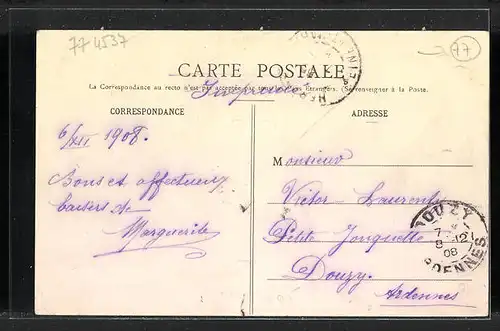 77 4537
77
CARTE POSTALE
La Correspondance au recto n'est pas acceptée par tous les pays étrangers. (Se renseigner à la Poste.
CORRESPONDANCE
ADRESSE
6/XII 1908.
Bons et affectueux
baisers de
Marguerite
Monsieur
Victor Laurent
Petite Jonquette
Douzy
Ardennes
DOUZY
7
8 -12
08
ARDENNES